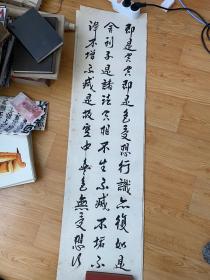 即是空空即是色受想行識亦復如是
舍利子是諸法空相不生不滅不垢不
淨不增不減是故空中無色無受想行